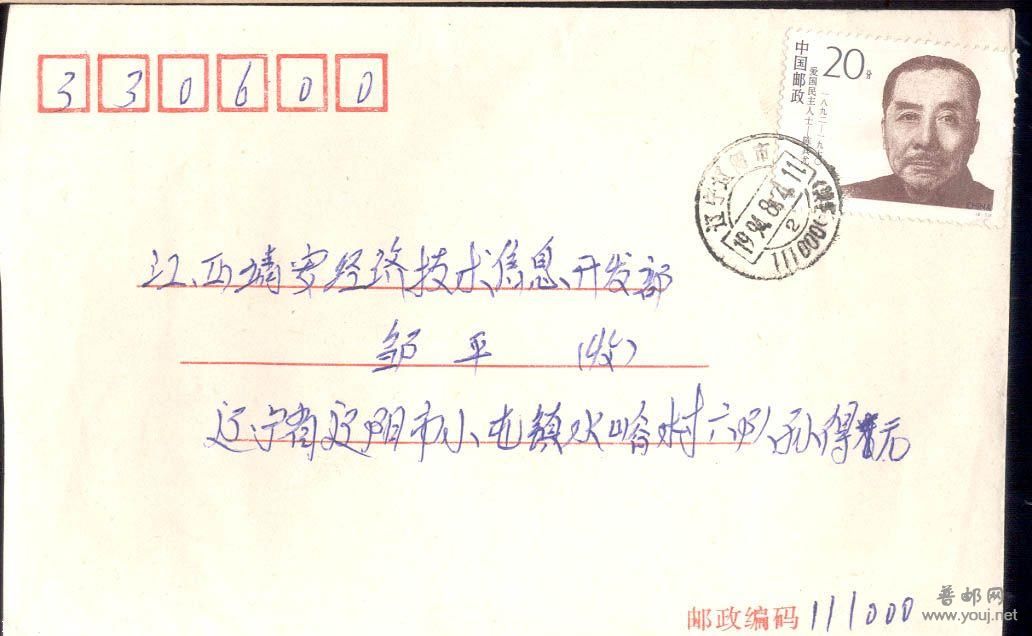 330600
中国邮政
20分
爱国民主人士—陈其尤
一八九二—一九七〇
CHINA
辽宁辽阳市
1994.8.4.11
2
111000
江西靖安经济技术信息开发部
邹平 (收)
辽宁省辽阳市小屯镇双峪村六队孙得元
邮政编码 111000
普邮网
www.youj.net